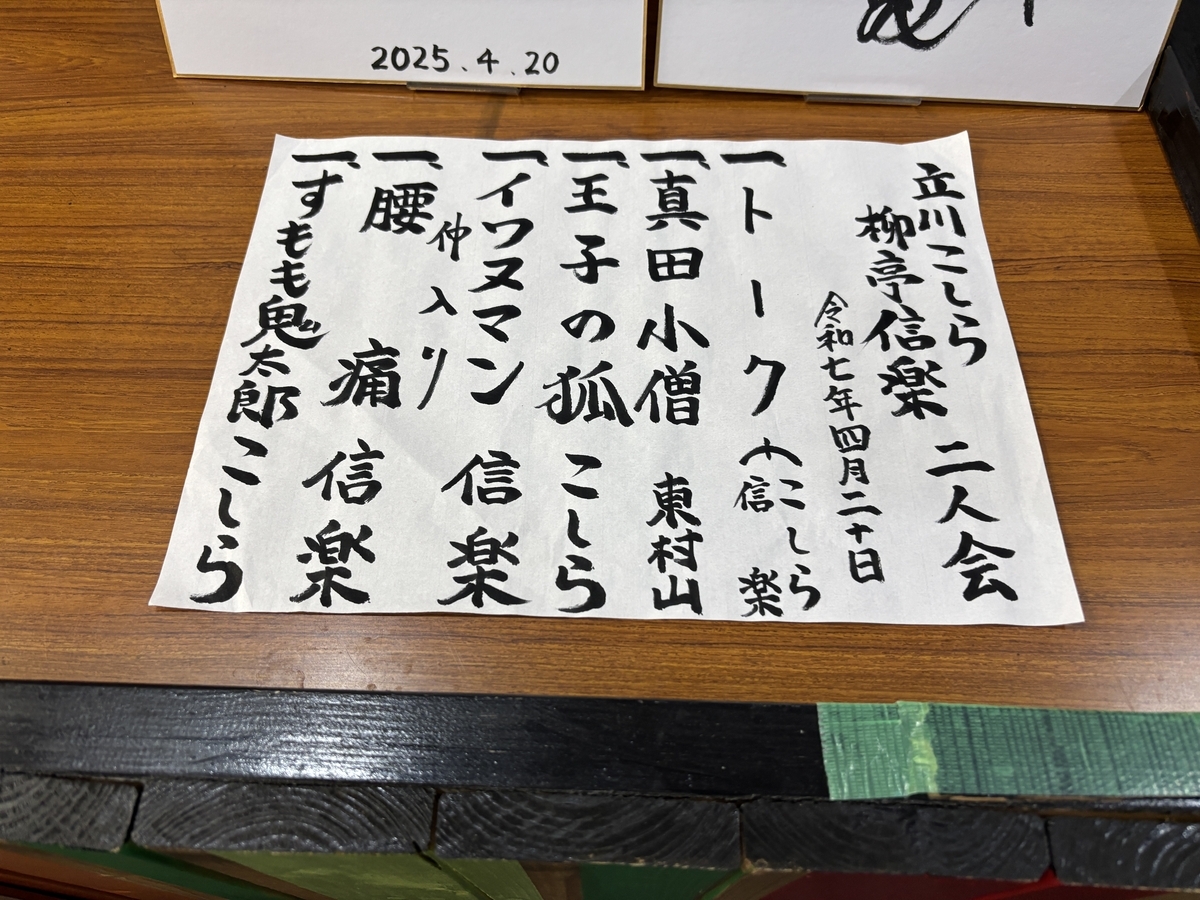 2025.4.20
立川こしら
柳亭信楽 二人会
令和七年四月二十日
一、トーク(こしら
信楽
一、真田小僧 東村山
一、王子の狐 こしら
一、イワヌマン 信楽
仲入り
一、腰痛 信楽
一、すもも鬼太郎 こしら